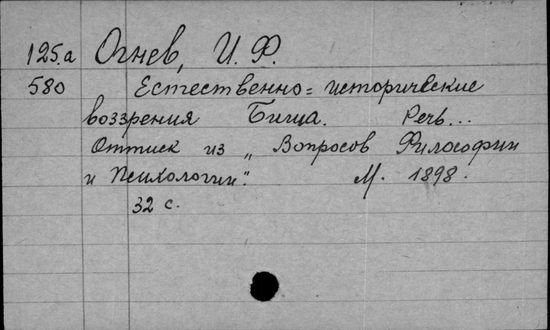 125.а Огнев, И. Ф.
580 Естественно=исторические
воззрения Биша. Речь...
Оттиск из „Вопросов Философии
и Психологии". М. 1898.
32 с.